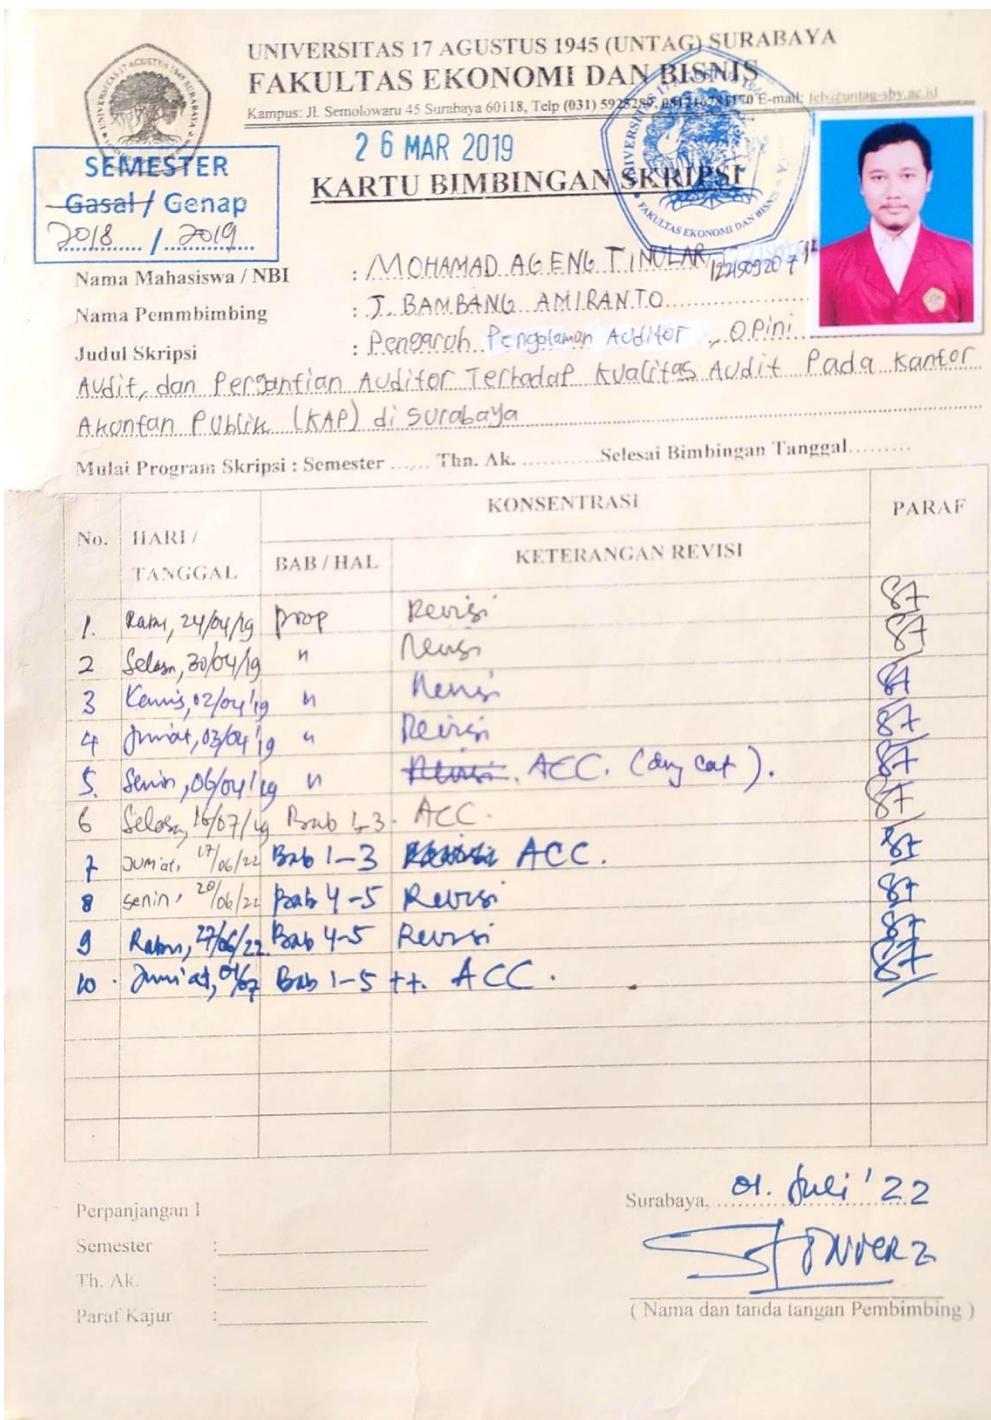 UNIVERSITAS 17 AGUSTUS 1945 (UNTAG) SURABAYA
FAKULTAS EKONOMI DAN BISNIS
Kampus: Jl. Semolowaru 45 Surabaya 60118, Telp (031) E-mail: feb@untag-sby.ac.id
26 MAR 2019
SEMESTER
Gasal / Genap
2018 / 2019
KARTU BIMBINGAN SKRIPSI
FAKULTAS EKONOMI DAN BISNIS
Nama Mahasiswa / NBI : MOHAMAD AGENG TINULAR
Nama Pemmbimbing : J. BAMBANG AMIRANTO
Judul Skripsi : Pengaruh Pengalaman Auditor, Opini
Audit, dan Pergantian Auditor Terhadap Kualitas Audit Pada Kantor
Akuntan Publik (KAP) di Surabaya
Mulai Program Skripsi : Semester ...... Thn. Ak. ............Selesai Bimbingan Tanggal.........
No. HARI / TANGGAL KONSENTRASI PARAF
BAB / HAL KETERANGAN REVISI
1. Rabu, 24/04/19 prop Revisi
2 Selasa, 30/04/19 " Revisi
3 Kamis, 02/04/19 " Revisi
4 Jum'at, 03/04/19 " Revisi
5. Senin, 06/04/19 " Revisi. ACC. (dng cat).
6 Selasa, 16/07/19 Bab 1-3. ACC.
7 Jum'at, 17/06/22 Bab 1-3 Revisi ACC.
8 Senin, 20/06/22 Bab 4-5 Revisi
9 Rabu, 27/06/22. Bab 4-5 Revisi
10. Jum'at, 01/07 Bab 1-5 ++. ACC.
Perpanjangan 1
Semester :
Th. Ak. :
Paraf Kajur :
Surabaya, 01. Juli '22
( Nama dan tanda tangan Pembimbing )